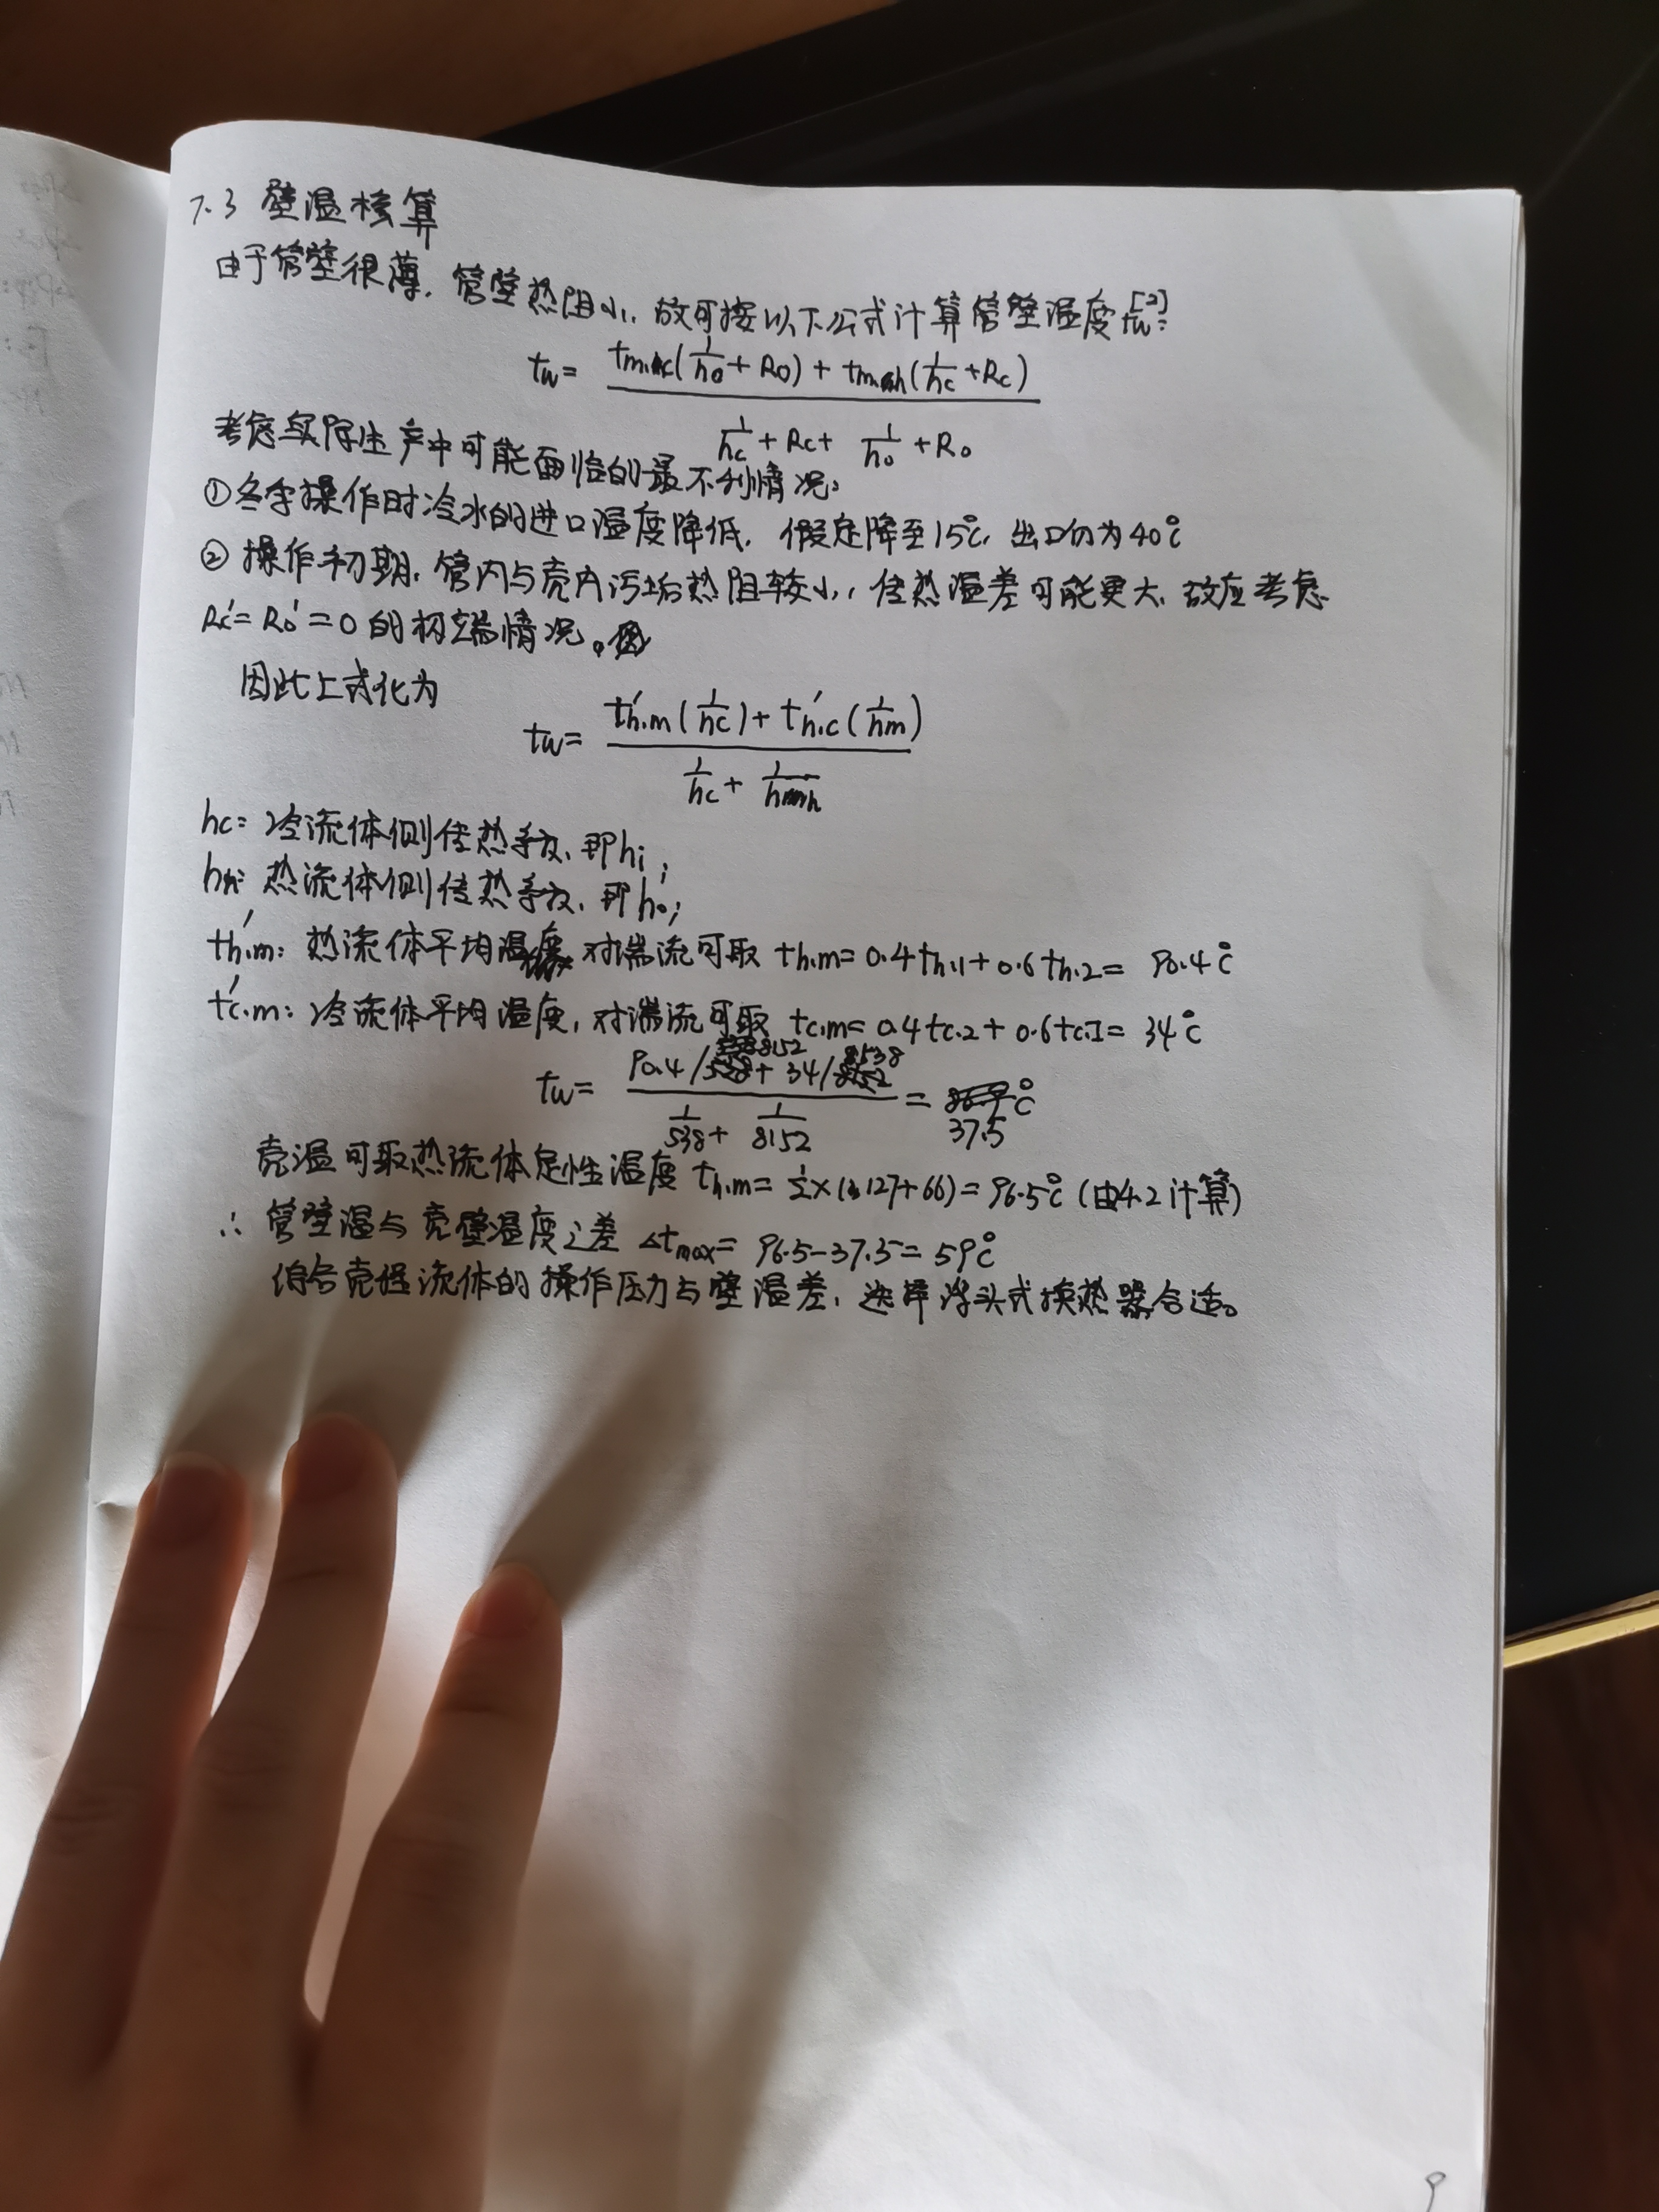 7.3 壁温核算
由于管壁很薄，管壁热阻小，故可按以下公式计算管壁温度tw[2]:
tw= (tm,c(1/ho+Ro)+tm,h(1/hc+Rc)) / (1/hc+Rc+1/ho+Ro)
考虑实际生产中可能面临的最不利情况:
①冬季操作时冷水的进口温度降低，假定降至15℃，出口仍为40℃
②操作初期，管内与壳内污垢热阻较小，传热温差可能更大，故应考虑
Rc'=Ro'=0的极端情况。
因此上式化为
tw= (t'h,m(1/hc)+t'h,c(1/hm)) / (1/hc+1/hh)
hc: 冷流体侧传热系数，即hi;
hh: 热流体侧传热系数，即ho;
t'h,m: 热流体平均温度 对湍流可取 th,m=0.4th,1+0.6th,2= 90.4℃
t'c,m: 冷流体平均温度，对湍流可取 tc,m=0.4tc,2+0.6tc,1= 34℃
tw= (90.4/8152+34/538) / (1/538+1/8152) = 37.5℃
壳温可取热流体定性温度 th,m=½×(127+66)=96.5℃(由4.2计算)
∴ 管壁温与壳壁温度之差 Δtmax= 96.5-37.5=59℃
结合壳程流体的操作压力与壁温差，选择浮头式换热器合适。
9